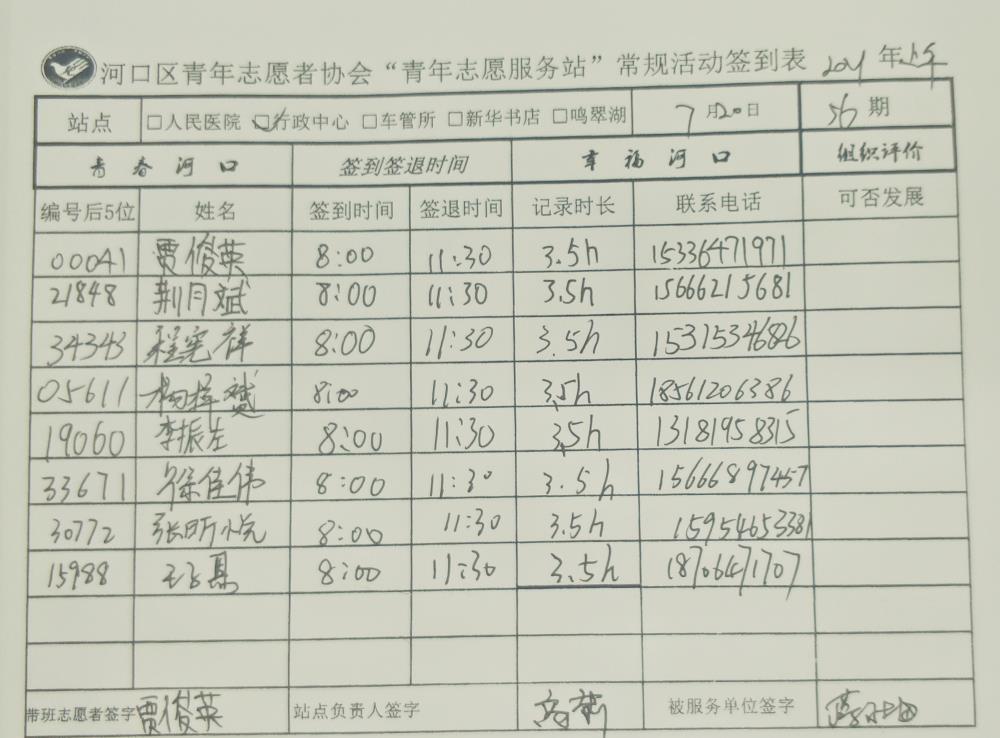 河口区青年志愿者协会“青年志愿服务站”常规活动签到表 年上午
站点 □人民医院 ☑行政中心 □车管所 □新华书店 □鸣翠湖 7月20日 56期
青春河口 签到签退时间 幸福河口 组织评价
编号后5位 姓名 签到时间 签退时间 记录时长 联系电话 可否发展
00041 贾俊英 8:00 11:30 3.5h 15336471971
21848 荆月斌 8:00 11:30 3.5h 15666215681
34343 程宪祥 8:00 11:30 3.5h 15315346826
05611 8:00 11:30 3.5h 18561206386
19060 李振生 8:00 11:30 3.5h 13181958315
33671 徐佳伟 8:00 11:30 3.5h 15666897457
30772 张昕悦 8:00 11:30 3.5h 15954653381
15988 8:00 11:30 3.5h 18706471707
带班志愿者签字 贾俊英 站点负责人签字 被服务单位签字